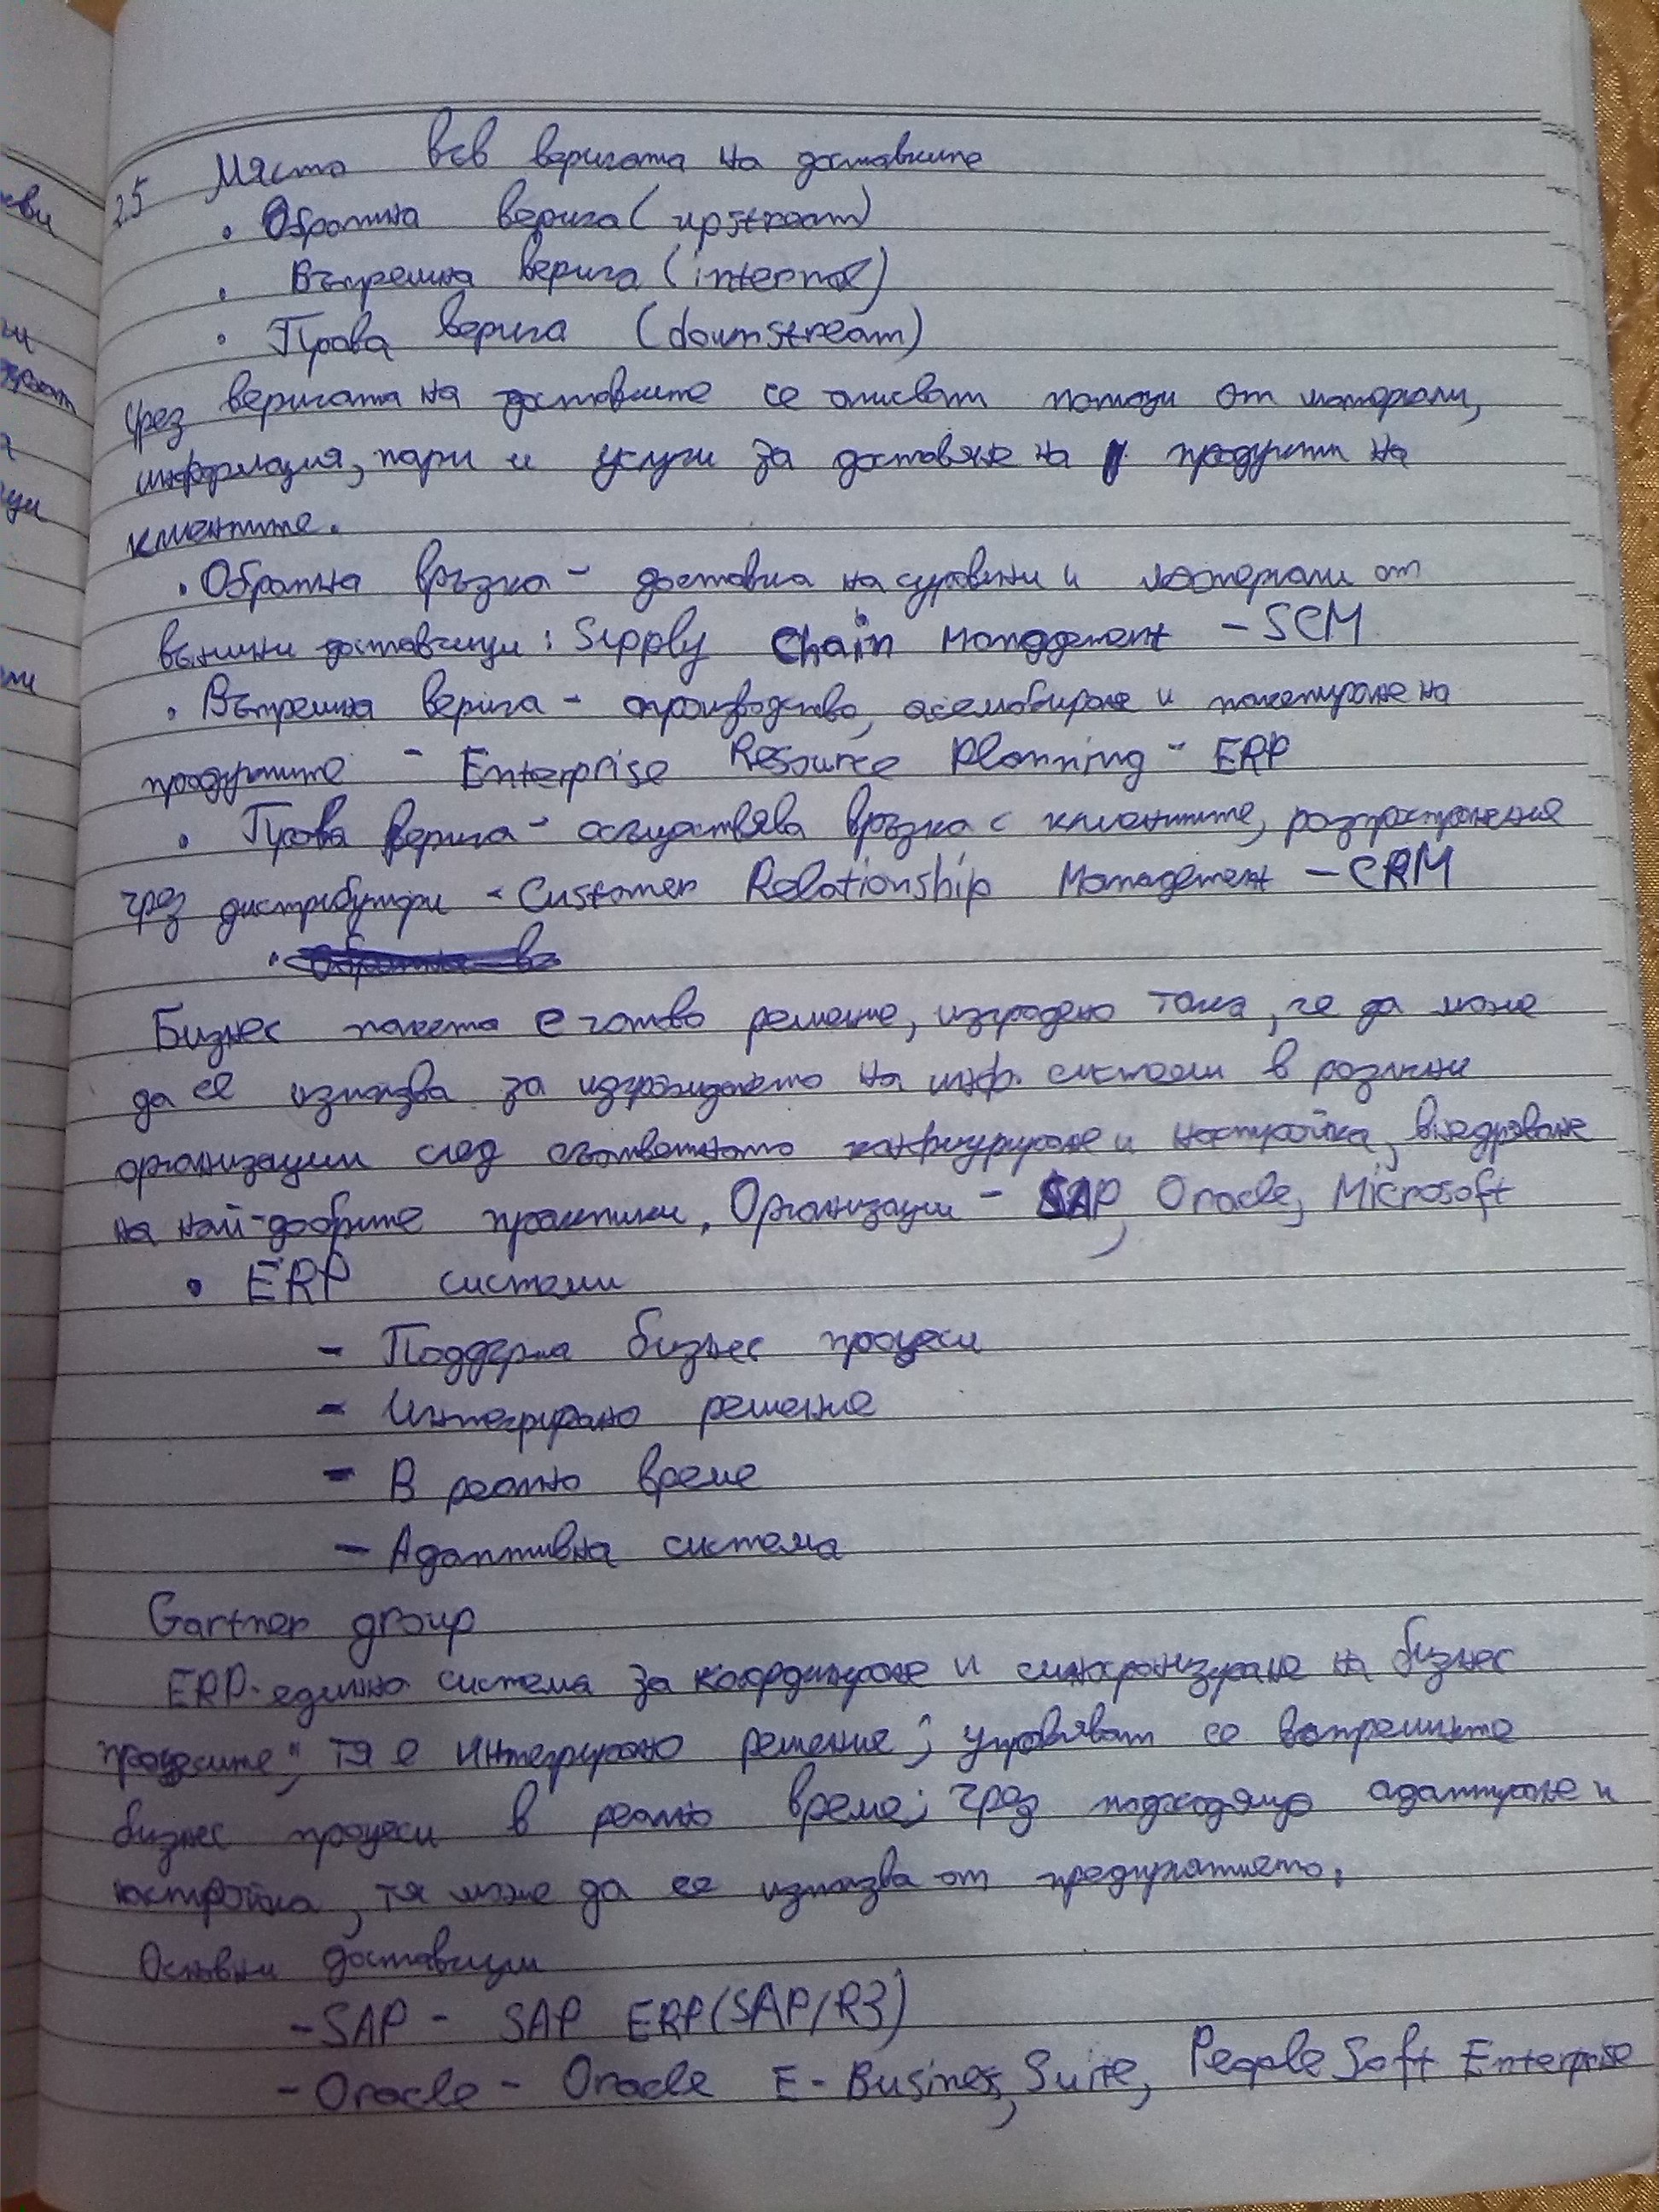 25 Място във веригата на доставките
• Обратна верига (upstream)
• Вътрешна верига (internal)
• Права верига (downstream)
Чрез веригата на доставките се описват потоци от материали,
информация, пари и услуги за доставяне на продукти на
клиентите.
• Обратна връзка - доставка на суровини и материали от
външни доставчици: Supply Chain Management - SCM
• Вътрешна верига - производство, асемблиране и пакетиране на
продуктите - Enterprise Resource Planning - ERP
• Права верига - осъществява връзка с клиентите, разпространения
чрез дистрибутори - Customer Relationship Management - CRM
Бизнес пакета е готово решение, изградено така, че да може
да се използва за изграждането на инф. системи в различни
организации след съответното конфигуриране и настройка, внедряване
на най-добрите практики. Организации - SAP, Oracle, Microsoft
• ERP системи
- Поддържа бизнес процеси
- Интегрирано решение
- В реално време
- Адаптивна система
Gartner group
ERP-единна система за координиране и синхронизиране на бизнес
процесите", тя е интегрирано решение; управляват се вътрешните
бизнес процеси в реално време; чрез подходящо адаптиране и
настройка, тя може да се използва от предприятието.
Основни доставчици
- SAP - SAP ERP (SAP/R3)
- Oracle - Oracle E-Business Suite, PeopleSoft Enterprise